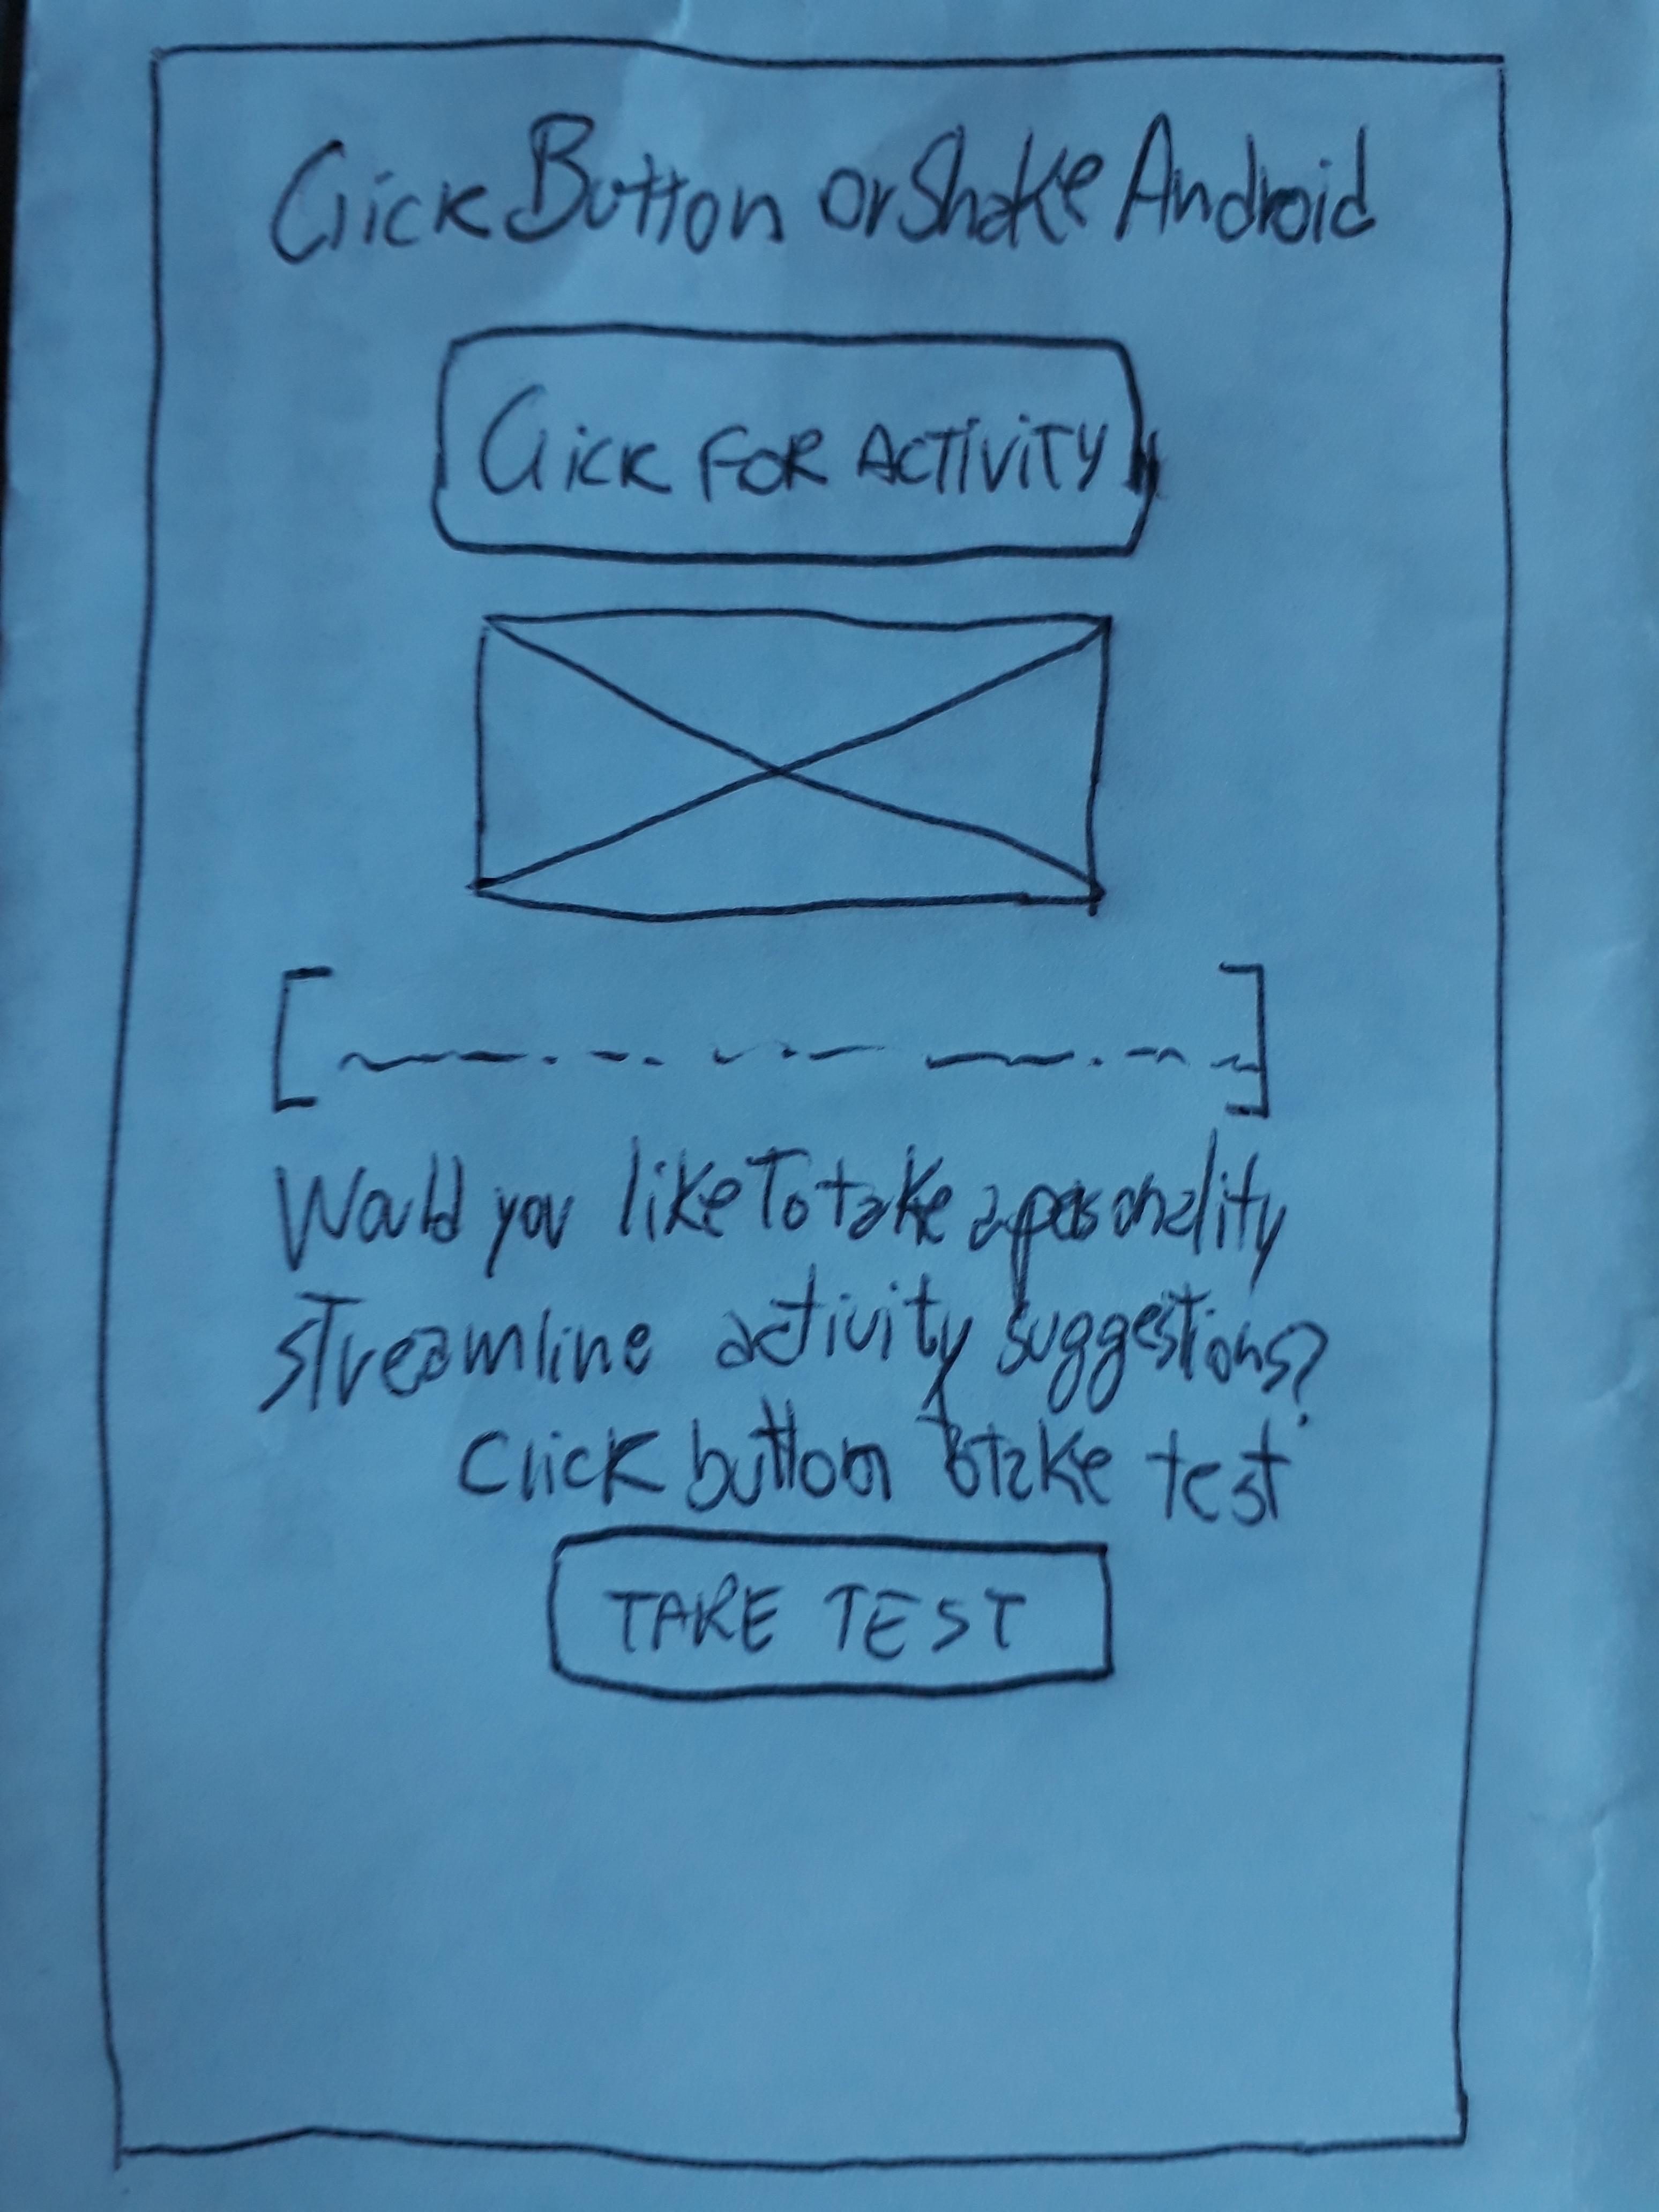 Click Button or Shake Android
Click FOR ACTIVITY
Would you like To take a personality
streamline activity suggestions?
Click button to take test
TAKE TEST